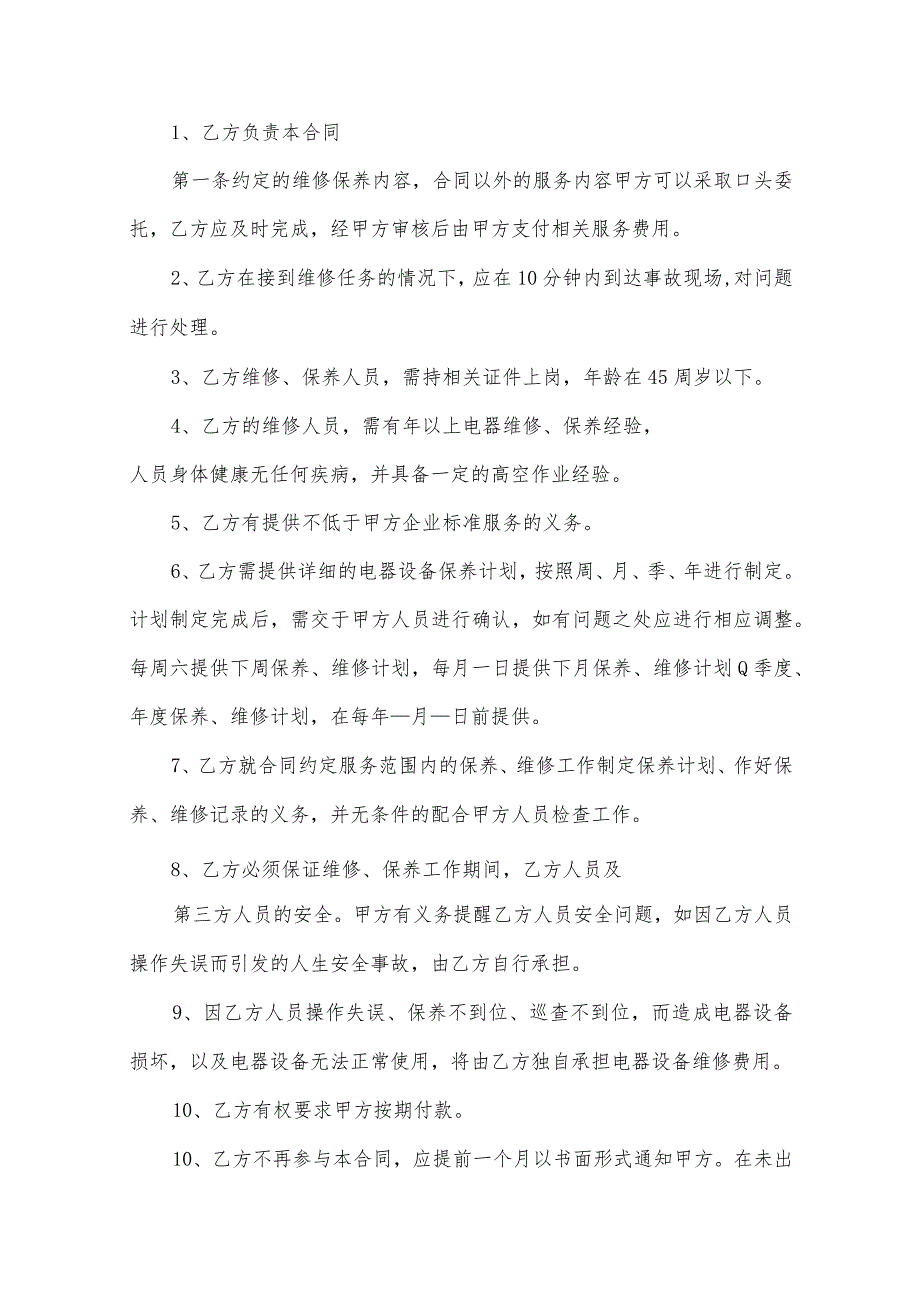 1、乙方负责本合同
第一条约定的维修保养内容，合同以外的服务内容甲方可以采取口头委
托，乙方应及时完成，经甲方审核后由甲方支付相关服务费用。
2、乙方在接到维修任务的情况下，应在 10 分钟内到达事故现场,对问题
进行处理。
3、乙方维修、保养人员，需持相关证件上岗，年龄在 45 周岁以下。
4、乙方的维修人员，需有年以上电器维修、保养经验，
人员身体健康无任何疾病，并具备一定的高空作业经验。
5、乙方有提供不低于甲方企业标准服务的义务。
6、乙方需提供详细的电器设备保养计划，按照周、月、季、年进行制定。
计划制定完成后，需交于甲方人员进行确认，如有问题之处应进行相应调整。
每周六提供下周保养、维修计划，每月一日提供下月保养、维修计划 Q 季度、
年度保养、维修计划，在每年—月—日前提供。
7、乙方就合同约定服务范围内的保养、维修工作制定保养计划、作好保
养、维修记录的义务，并无条件的配合甲方人员检查工作。
8、乙方必须保证维修、保养工作期间，乙方人员及
第三方人员的安全。甲方有义务提醒乙方人员安全问题，如因乙方人员
操作失误而引发的人生安全事故，由乙方自行承担。
9、因乙方人员操作失误、保养不到位、巡查不到位，而造成电器设备
损坏，以及电器设备无法正常使用，将由乙方独自承担电器设备维修费用。
10、乙方有权要求甲方按期付款。
10、乙方不再参与本合同，应提前一个月以书面形式通知甲方。在未出